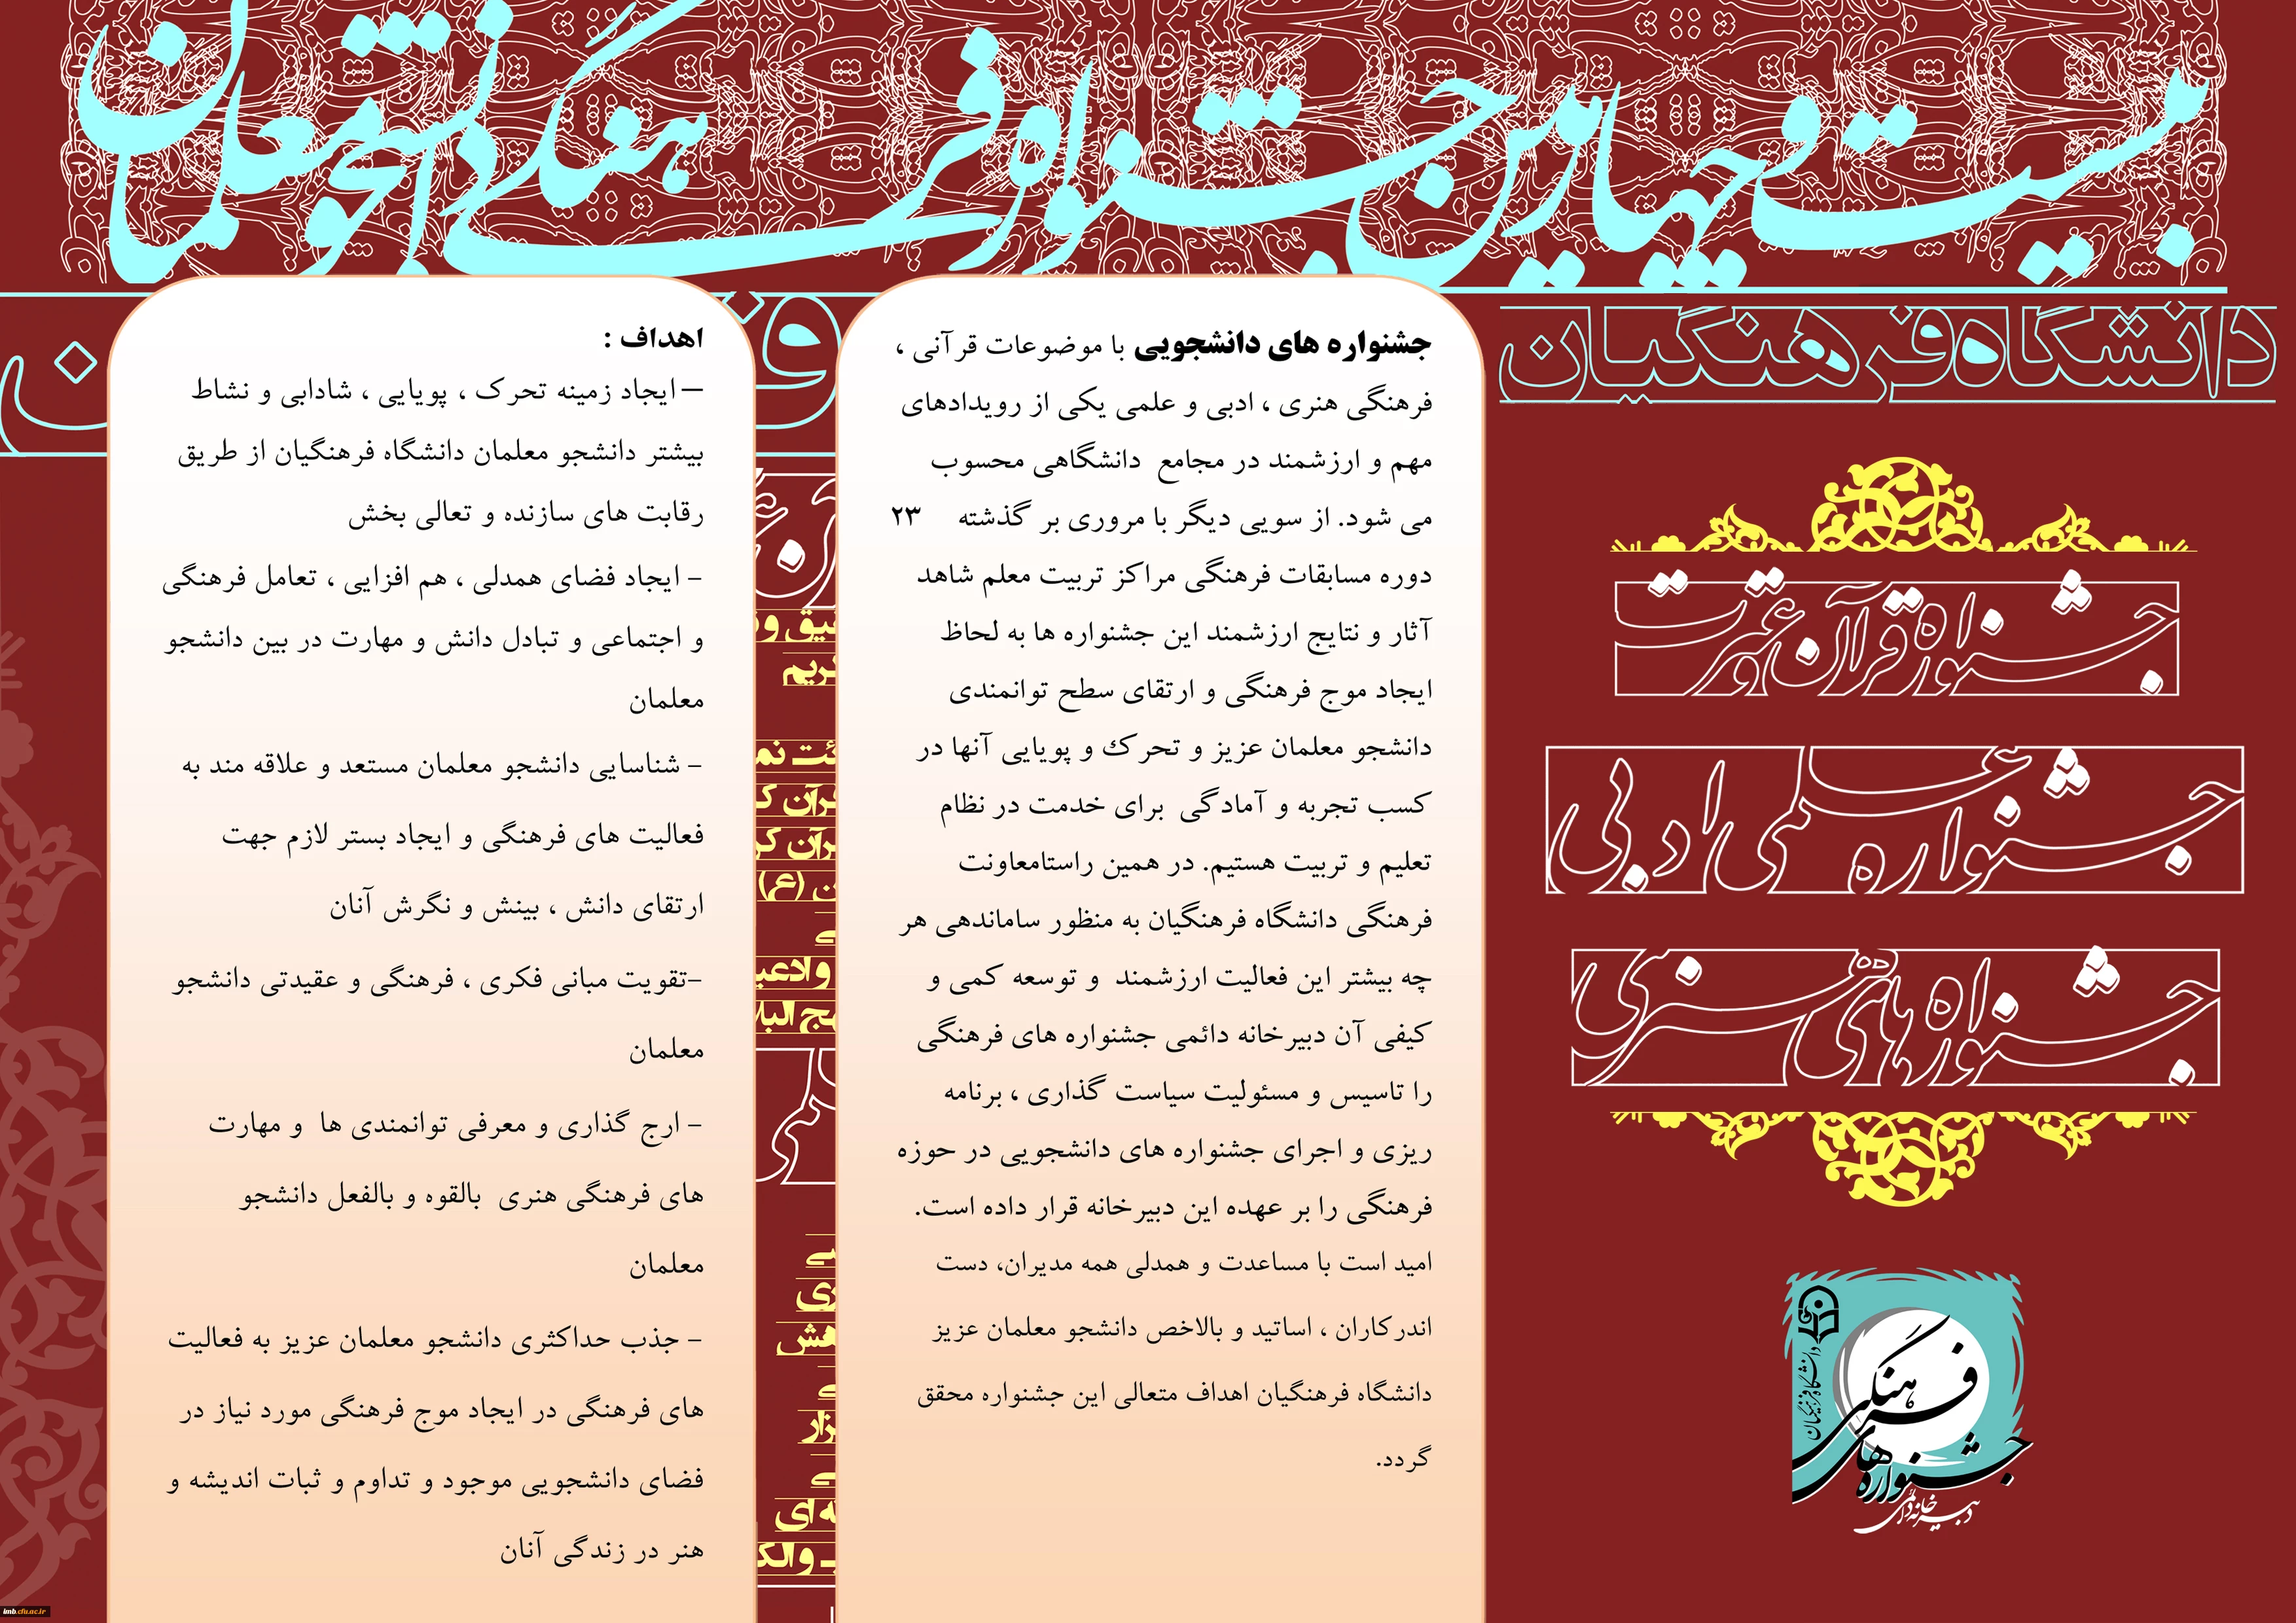 بیست و چهارمین جشنواره فرهنگی دانشجو معلمان
دانشگاه فرهنگیان
جشنواره قرآن و عترت
جشنواره علمی ادبی
جشنواره های هنری
دانشگاه فرهنگیان
فرهنگی
جشنواره های
دبیرخانه دائمی
جشنواره های دانشجویی با موضوعات قرآنی ،
فرهنگی هنری ، ادبی و علمی یکی از رویدادهای
مهم و ارزشمند در مجامع دانشگاهی محسوب
می شود. از سویی دیگر با مروری بر گذشته ۲۳
دوره مسابقات فرهنگی مراکز تربیت معلم شاهد
آثار و نتایج ارزشمند این جشنواره ها به لحاظ
ایجاد موج فرهنگی و ارتقای سطح توانمندی
دانشجو معلمان عزیز و تحرك و پویایی آنها در
کسب تجربه و آمادگی برای خدمت در نظام
تعلیم و تربیت هستیم. در همین راستامعاونت
فرهنگی دانشگاه فرهنگیان به منظور ساماندهی هر
چه بیشتر این فعالیت ارزشمند و توسعه کمی و
کیفی آن دبیرخانه دائمی جشنواره های فرهنگی
را تاسیس و مسئولیت سیاست گذاری ، برنامه
ریزی و اجرای جشنواره های دانشجویی در حوزه
فرهنگی را بر عهده این دبیرخانه قرار داده است.
امید است با مساعدت و همدلی همه مدیران، دست
اندرکاران ، اساتید و بالاخص دانشجو معلمان عزیز
دانشگاه فرهنگیان اهداف متعالی این جشنواره محقق
گردد.
اهداف :
– ایجاد زمینه تحرک ، پویایی ، شادابی و نشاط
بیشتر دانشجو معلمان دانشگاه فرهنگیان از طریق
رقابت های سازنده و تعالی بخش
- ایجاد فضای همدلی ، هم افزایی ، تعامل فرهنگی
و اجتماعی و تبادل دانش و مهارت در بین دانشجو
معلمان
- شناسایی دانشجو معلمان مستعد و علاقه مند به
فعالیت های فرهنگی و ایجاد بستر لازم جهت
ارتقای دانش ، بینش و نگرش آنان
-تقویت مبانی فکری ، فرهنگی و عقیدتی دانشجو
معلمان
- ارج گذاری و معرفی توانمندی ها و مهارت
های فرهنگی هنری بالقوه و بالفعل دانشجو
معلمان
- جذب حداکثری دانشجو معلمان عزیز به فعالیت
های فرهنگی در ایجاد موج فرهنگی مورد نیاز در
فضای دانشجویی موجود و تداوم و ثبات اندیشه و
هنر در زندگی آنان
imb.cfu.ac.ir